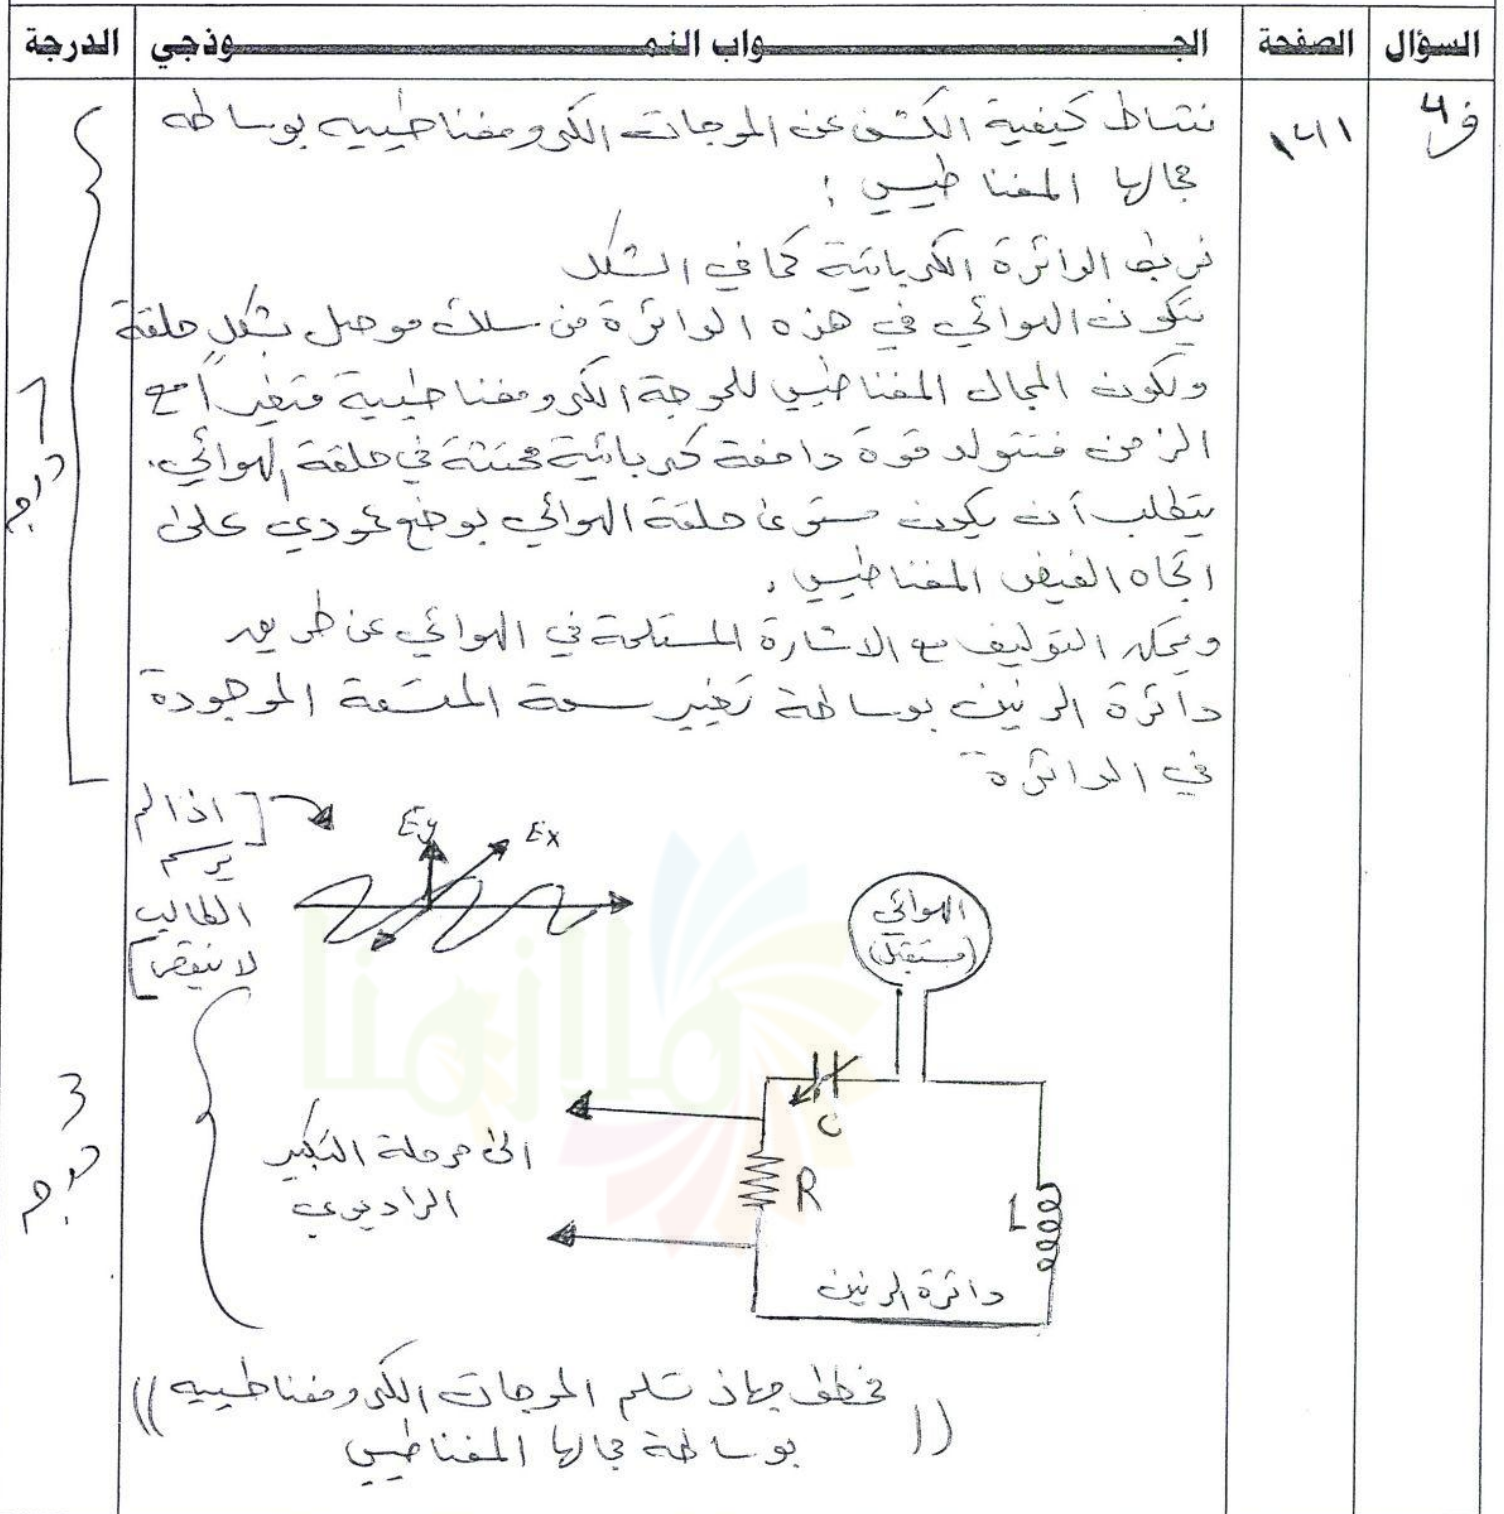 السؤال الصفحة الجـــواب النمـــوذجي الدرجة
ف٤ ١٢١
نشاط كيفية الكشف عن الموجات الكهرومغناطيسية بوساطة
مجالها المغناطيسي :
نربط الدائرة الكهربائية كما في الشكل
يتكون الهوائي في هذه الدائرة من سلك موصل بشكل حلقة
ويكون المجال المغناطيسي للموجة الكهرومغناطيسية متغيراً مع
الزمن فتتولد قوة دافعة كهربائية محتثة في حلقة الهوائي.
يتطلب أن يكون مستوى حلقة الهوائي بوضع عمودي على
اتجاه الفيض المغناطيسي.
ويمكن التوليف مع الاشارة المستلمة في الهوائي عن طريق
دائرة الرنين بوساطة تغيير سعة المتسعة الموجودة
في الدائرة
٦
درجات
[اذا لم
يرسم
الطالب
لا ينقص]
Ey
Ex
الهوائي
(مستقبل)
C
R
L
دائرة الرنين
الى مرحلة التكبير
الراديوي
3
درجات
((مخطط جهاز تسلم الموجات الكهرومغناطيسية
بوساطة مجالها المغناطيسي))
ملازمنا